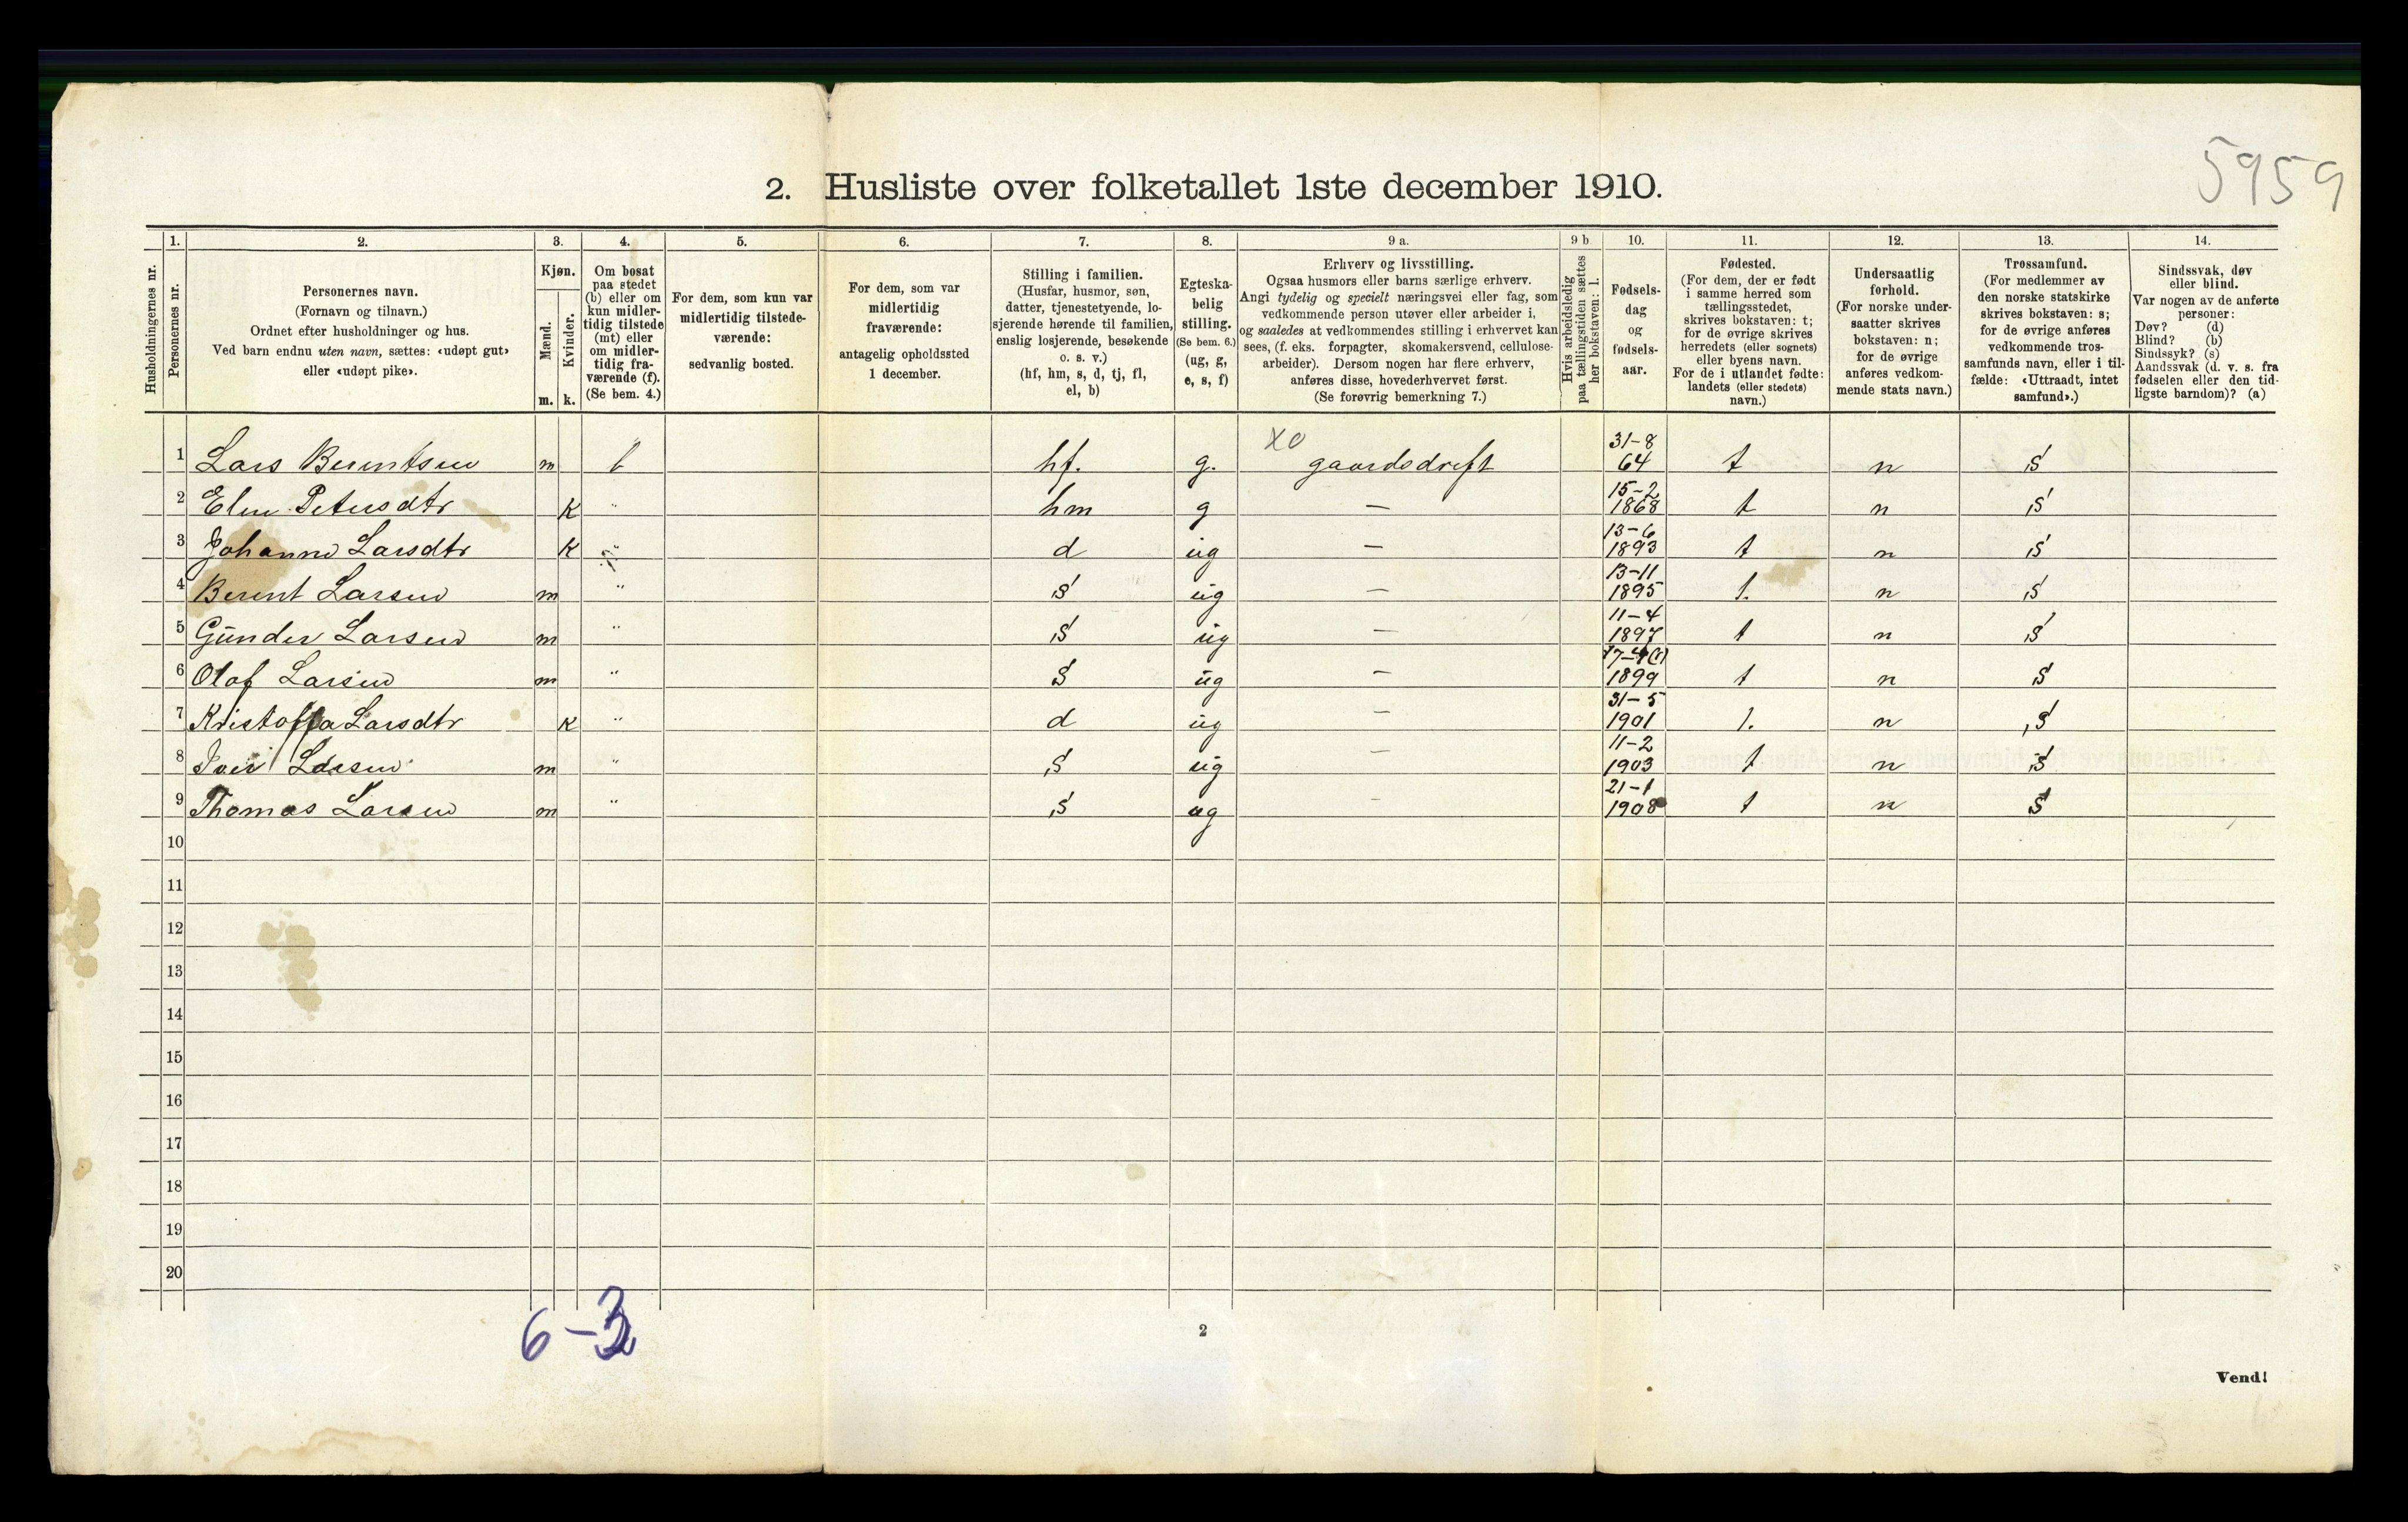 5959
2. Husliste over folketallet 1ste december 1910.
Husholdningernes nr.
1.
Personernes nr.
2.
Personernes navn.
(Fornavn og tilnavn.)
Ordnet efter husholdninger og hus.
Ved barn endnu uten navn, sættes: «udøpt gut»
eller «udøpt pike».
3.
Kjøn.
Mænd.
Kvinder.
m. k.
4.
Om bosat
paa stedet
(b) eller om
kun midler-
tidig tilstede
(mt) eller
om midler-
tidig fra-
værende (f).
(Se bem. 4.)
5.
For dem, som kun var
midlertidig tilstede-
værende:
sedvanlig bosted.
6.
For dem, som var
midlertidig
fraværende:
antagelig opholdssted
1 december.
7.
Stilling i familien.
(Husfar, husmor, søn,
datter, tjenestetyende, lo-
sjerende hørende til familien,
enslig losjerende, besøkende
o. s. v.)
(hf, hm, s, d, tj, fl,
el, b)
8.
Egteska-
belig
stilling.
(Se bem. 6.)
(ug, g,
e, s, f)
9 a.
Erhverv og livsstilling.
Ogsaa husmors eller barns særlige erhverv.
Angi tydelig og specielt næringsvei eller fag, som
vedkommende person utøver eller arbeider i,
og saaledes at vedkommendes stilling i erhvervet kan
sees, (f. eks. forpagter, skomakersvend, cellulose-
arbeider). Dersom nogen har flere erhverv,
anføres disse, hovederhvervet først.
(Se forøvrig bemerkning 7.)
9 b
Hvis arbeidsledig
paa tællingstiden sættes
her bokstaven: l.
10.
Fødsels-
dag
og
fødsels-
aar.
11.
Fødested.
(For dem, der er født
i samme herred som
tællingsstedet,
skrives bokstaven: t;
for de øvrige skrives
herredets (eller sognets)
eller byens navn.
For de i utlandet fødte:
landets (eller stedets)
navn.)
12.
Undersaatlig
forhold.
(For norske under-
saatter skrives
bokstaven: n;
for de øvrige
anføres vedkom-
mende stats navn.)
13.
Trossamfund.
(For medlemmer av
den norske statskirke
skrives bokstaven: s;
for de øvrige anføres
vedkommende tros-
samfunds navn, eller i til-
fælde: «Uttraadt, intet
samfund».)
14.
Sindssvak, døv
eller blind.
Var nogen av de anførte
personer:
Døv? (d)
Blind? (b)
Sindssyk? (s)
Aandssvak (d. v. s. fra
fødselen eller den tid-
ligste barndom)? (a)
1 Lars Berntsen m b hf. g. XO gaardsdrift 31-8 64 t n s
2 Elen Petersdtr k " hm g — 15-2 1868 t n s
3 Johanne Larsdtr k " d ug — 13-6 1893 t n s
4 Berent Larsen m " s ug — 13-11 1895 t. n s
5 Gunder Larsen m " s ug — 11-4 1897 t n s
6 Olaf Larsen m " s ug — 1899 t n s
7 Kristoffa Larsdtr k " d ug — 31-5 1901 t. n s
8 Iver Larsen m " s ug — 11-2 1903 t n s
9 Thomas Larsen m " s ug — 21-1 1908 t n s
10
11
12
13
14
15
16
17
18
19
20
6-3
2
Vend!